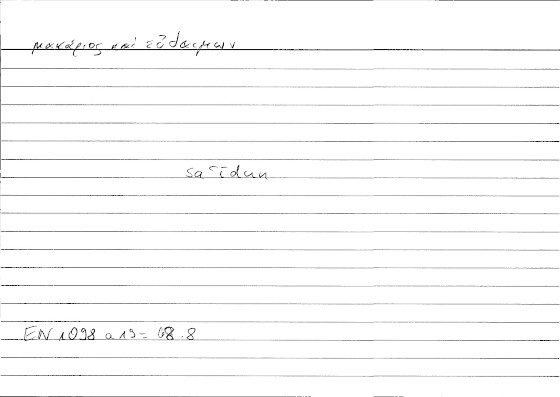 μακάριος καὶ εὐδαίμων
saʿīdun
EN 1098 a 19 = 68.8